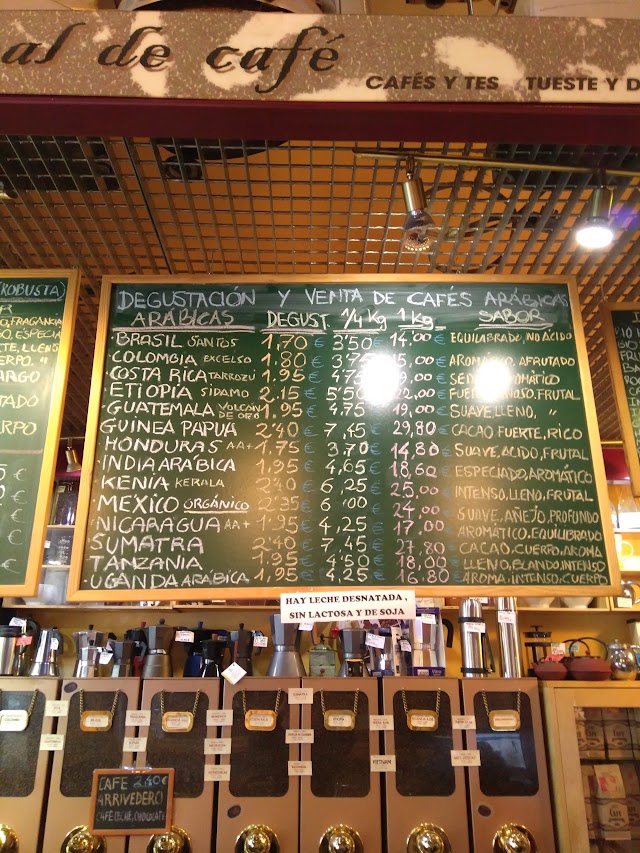 al de café
CAFÉS Y TES TUESTE Y D
ROBUSTA)
DEGUSTACIÓN Y VENTA DE CAFES ARÁBICAS
ARÁBICAS DEGUST. 1/4 Kg 1 Kg SABOR
BRASIL SANTOS 1,70 € 3'50 € 14,00 € EQUILIBRADO, NO ÁCIDO
COLOMBIA EXCELSO 1.80 € 3'75 15,00 € AROMÁTICO, AFRUTADO
COSTA RICA TARROZÚ 1.95 € 4'75 AROMÁTICO
ETIOPIA SIDAMO 2.15 € 5'50 22,00 € FRUTAL
GUATEMALA VOLCÁN DE ORO 1.95 € 4.75 19,00 € SUAVE, LLENO, "
GUINEA PAPUA 2'40 € 7,45 € 29,80 € CACAO FUERTE, RICO
HONDURAS AA+ 1,75 € 3.70 € 14,80 € SUAVE, ACIDO, FRUTAL
INDIA ARÁBICA 1,95 € 4,65 € 18,60 € ESPECIADO, AROMÁTICO
KENÍA KERALA 2'40 € 6,25 € 25,00 € INTENSO, LLENO, FRUTAL
MEXICO ORGÁNICO 2'35 € 6'00 € 24,00 € SUAVE, AÑEJO, PROFUNDO
NICARAGUA AA+ 1'95 € 4,25 € 17,00 € AROMÁTICO, EQUILIBRADO
SUMATRA 2'40 € 7,45 € 27,80 € CACAO, CUERPO, AROMA
TANZANIA 1,95 € 4'50 € 18,00 € LLENO, BLANDO, INTENSO
UGANDA ARÁBICA 1,95 € 4.25 € 16.80 € AROMA, INTENSO, CUERPO
HAY LECHE DESNATADA,
SIN LACTOSA Y DE SOJA
CAFE 2,40€
ARRIVEDERCI
CAFÉ, LECHE, CHOCOLATE